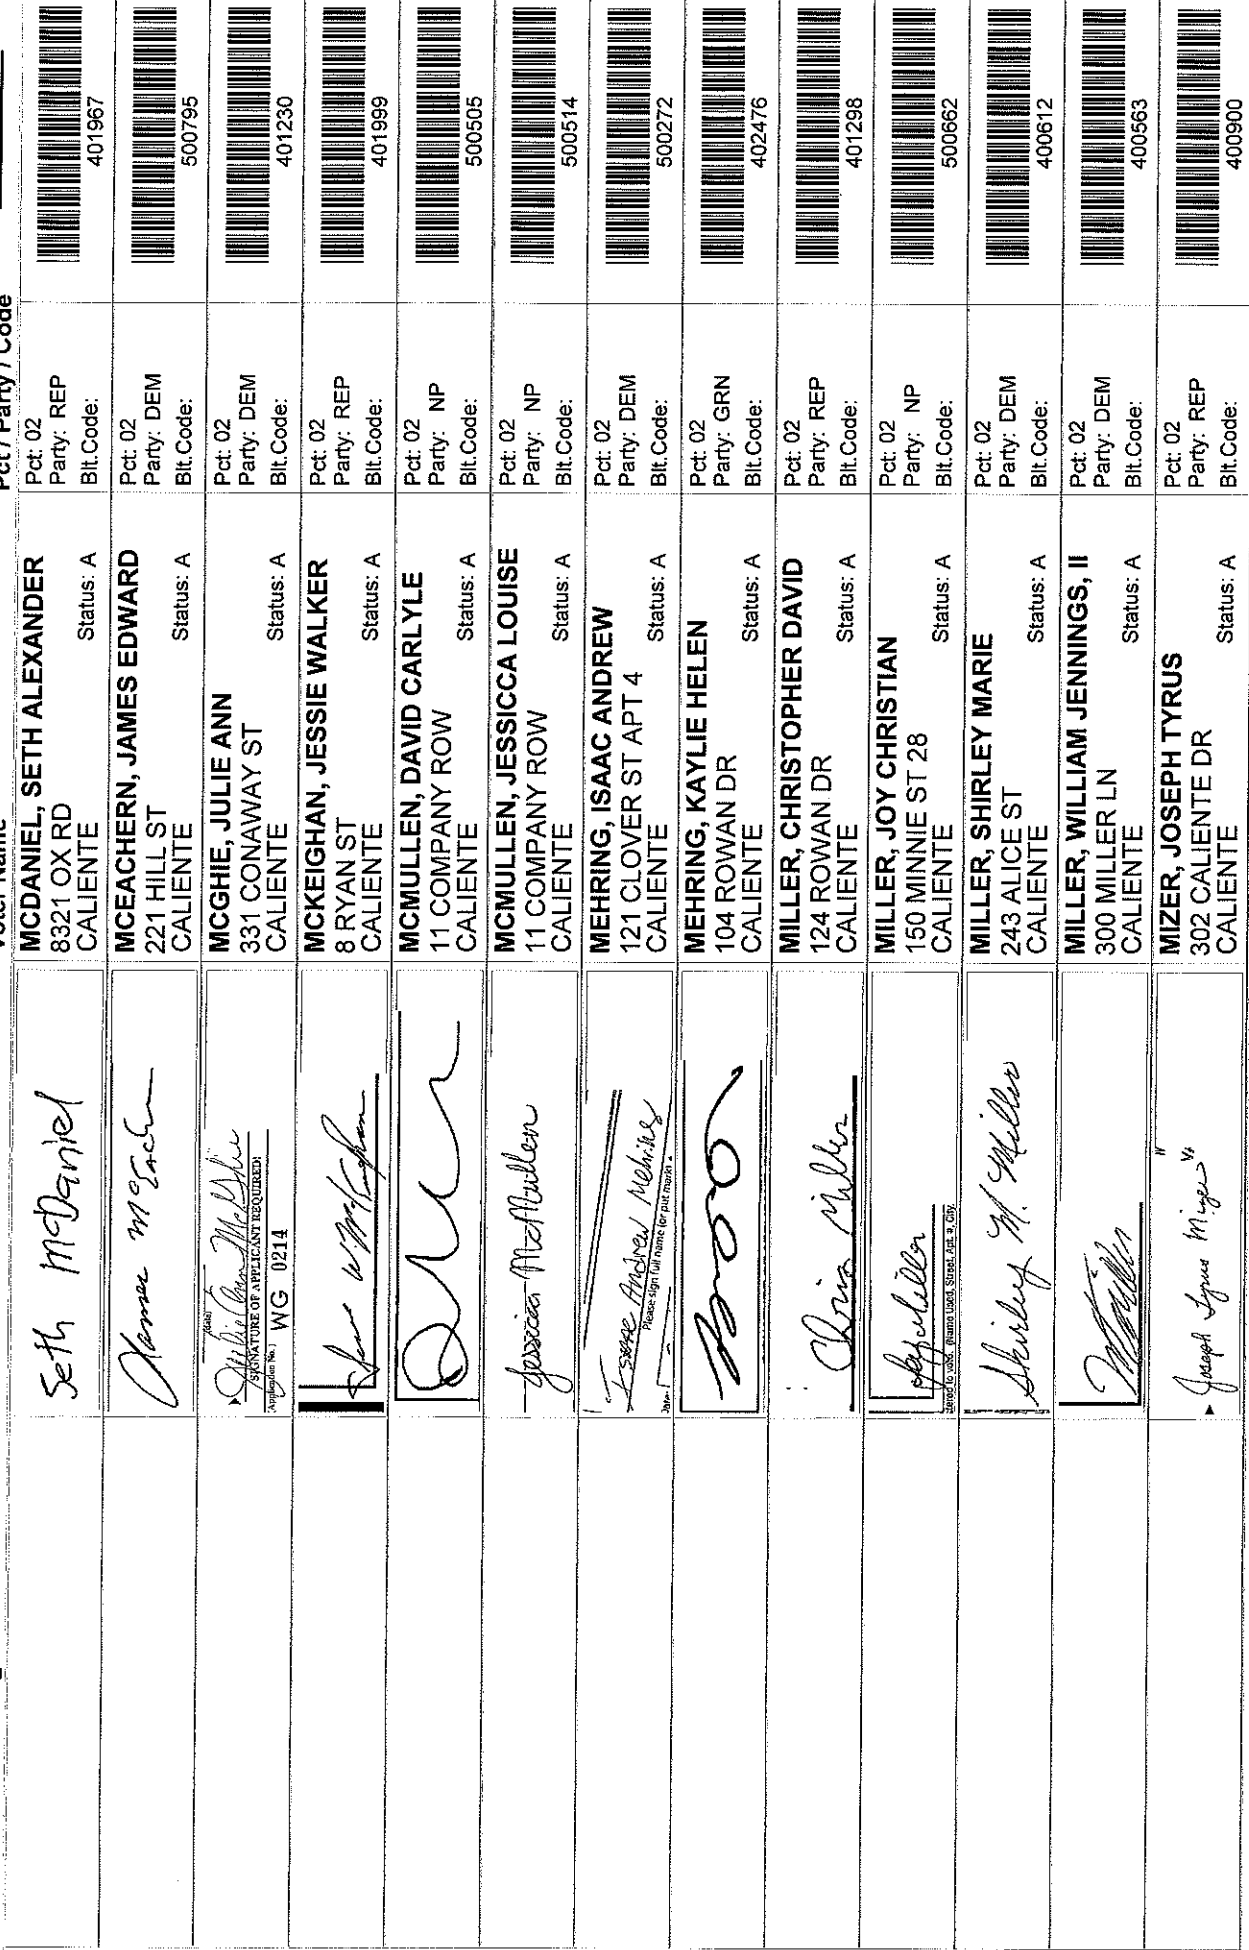 Voter Name Pct / Party / Code
Seth McDaniel
MCDANIEL, SETH ALEXANDER
8321 OX RD
CALIENTE Status: A
Pct: 02
Party: REP
Blt.Code:
401967
James McEach
MCEACHERN, JAMES EDWARD
221 HILL ST
CALIENTE Status: A
Pct: 02
Party: DEM
Blt.Code:
500795
(date)
Julie Ann McGhie
SIGNATURE OF APPLICANT REQUIRED
(Application No.) WG 0214
MCGHIE, JULIE ANN
331 CONAWAY ST
CALIENTE Status: A
Pct: 02
Party: DEM
Blt.Code:
401230
MCKEIGHAN, JESSIE WALKER
8 RYAN ST
CALIENTE Status: A
Pct: 02
Party: REP
Blt.Code:
401999
MCMULLEN, DAVID CARLYLE
11 COMPANY ROW
CALIENTE Status: A
Pct: 02
Party: NP
Blt.Code:
500505
Jessicca McMullen
MCMULLEN, JESSICCA LOUISE
11 COMPANY ROW
CALIENTE Status: A
Pct: 02
Party: NP
Blt.Code:
500514
Isaac Andrew Mehring
Please sign full name (or put mark)
Date:
MEHRING, ISAAC ANDREW
121 CLOVER ST APT 4
CALIENTE Status: A
Pct: 02
Party: DEM
Blt.Code:
500272
MEHRING, KAYLIE HELEN
104 ROWAN DR
CALIENTE Status: A
Pct: 02
Party: GRN
Blt.Code:
402476
Chris Miller
MILLER, CHRISTOPHER DAVID
124 ROWAN DR
CALIENTE Status: A
Pct: 02
Party: REP
Blt.Code:
401298
Joy Miller
(Name Used, Street, Apt. #, City,
MILLER, JOY CHRISTIAN
150 MINNIE ST 28
CALIENTE Status: A
Pct: 02
Party: NP
Blt.Code:
500662
Shirley M. Miller
MILLER, SHIRLEY MARIE
243 ALICE ST
CALIENTE Status: A
Pct: 02
Party: DEM
Blt.Code:
400612
MILLER, WILLIAM JENNINGS, II
300 MILLER LN
CALIENTE Status: A
Pct: 02
Party: DEM
Blt.Code:
400563
Joseph Tyrus Mizer
MIZER, JOSEPH TYRUS
302 CALIENTE DR
CALIENTE Status: A
Pct: 02
Party: REP
Blt.Code:
400900